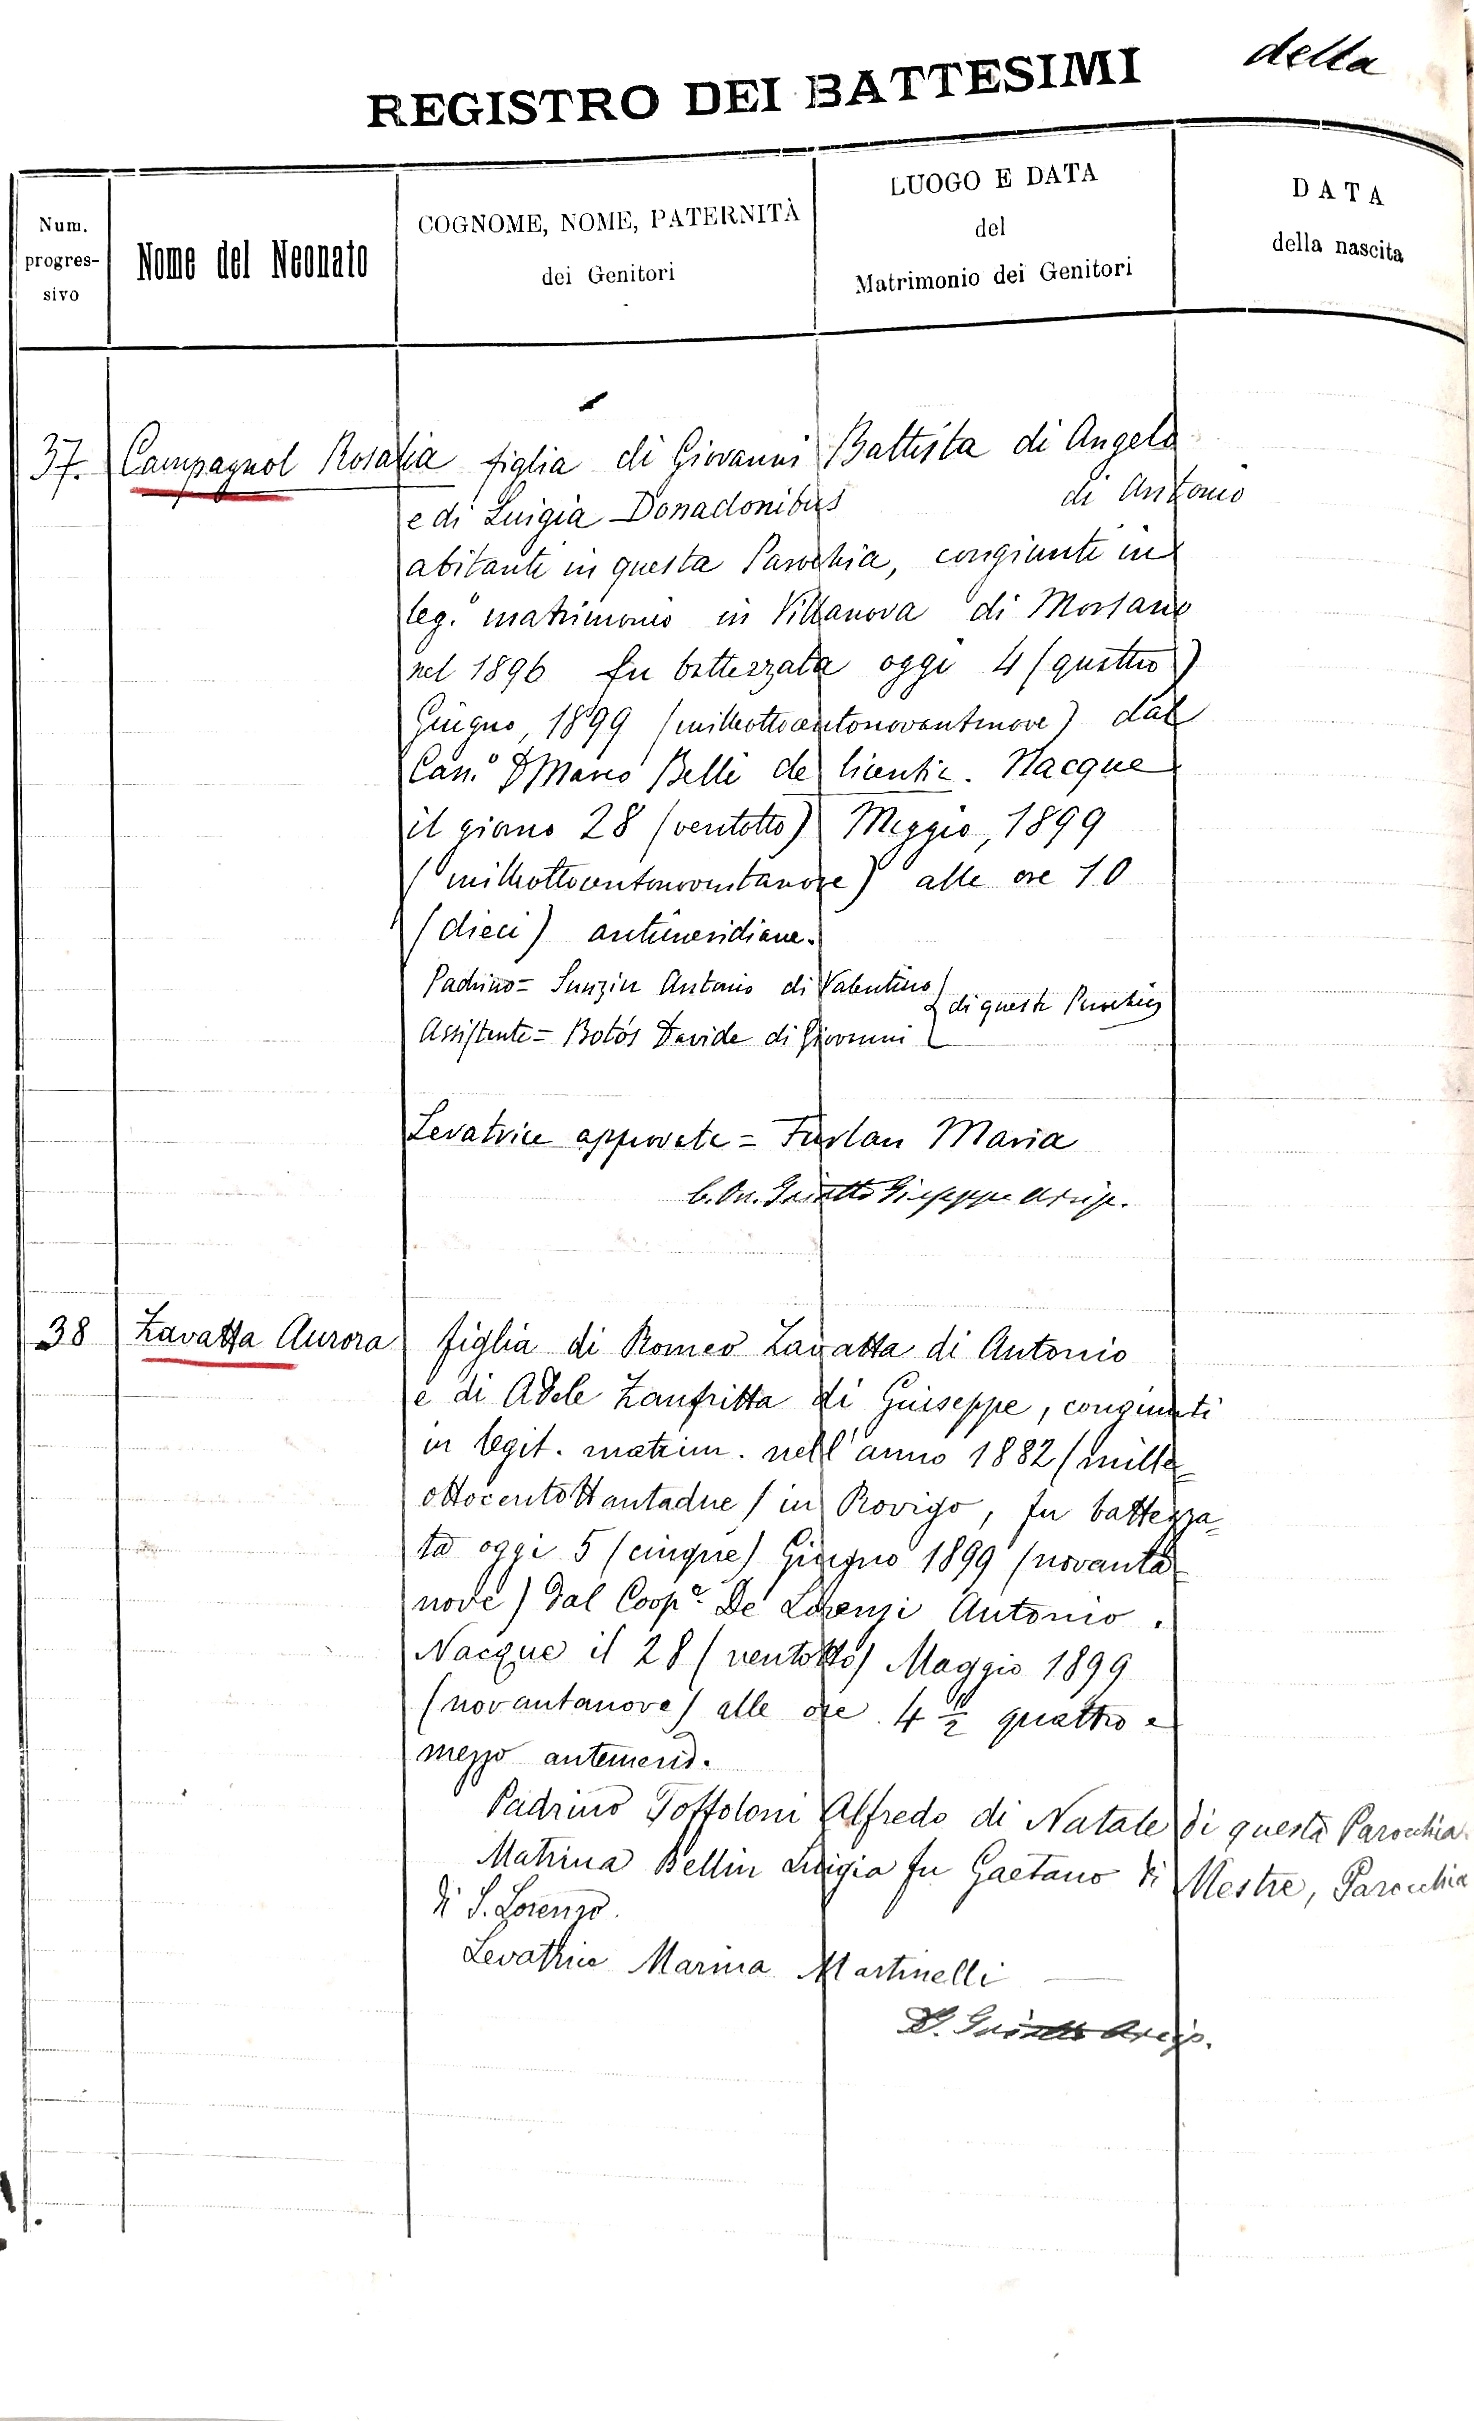 REGISTRO DEI BATTESIMI della
Num. progres- sivo
Nome del Neonato
COGNOME, NOME, PATERNITÀ
dei Genitori
LUOGO E DATA
del
Matrimonio dei Genitori
DATA
della nascita
37. Campagnol Rosalia figlia di Giovanni Battista di Angelo
e di Luigia Donadonibus di Antonio
abitanti in questa Parochia, congiunti in
leg.º matrimonio in Villanova di Morsano
nel 1896 fu battezzata oggi 4 (quattro)
Giugno, 1899 (milleottocentonovantanove) dal
Can.º D Marco Belli de licentia. Nacque
il giorno 28 (ventotto) Maggio, 1899
(milleottocentonovantanove) alle ore 10
(dieci) antimeridiane.
Padrino= Antonio di Valentino
Assistente= Botós Davide di Giovanni
di questa Parochia
Levatrice approvata = Furlan Maria
Giuseppe Arcip.
38 Zavatta Aurora figlia di Romeo Zavatta di Antonio
e di Adele Zanfritta di Guiseppe, congiunti
in legit. matrim. nell'anno 1882 (mille
ottocentottantadue) in Rovigo, fu battezza-
ta oggi 5 (cinque) Giugno 1899 (novanta
nove) dal Coop.e De Lorenzi Antonio.
Nacque il 28 (ventotto) Maggio 1899
(novantanove) alle ore 4 ½ quattro e
mezzo antemerid.
Padrino Toffoloni Alfredo di Natale di questa Parocchia.
Matrina Bellin Luigia fu Gaetano di Mestre, Parocchia
di S. Lorenzo.
Levatrice Marina Martinelli
D. Arcip.